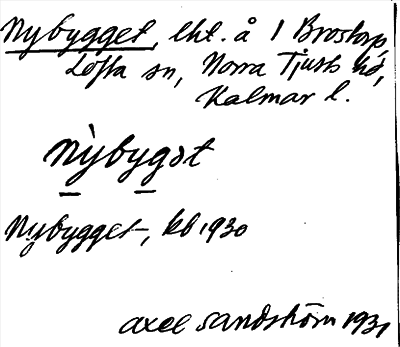 Nybygget, lht. å 1 Brostorp,
Lofta sn, Norra Tjusts hd,
Kalmar l.
nỳbygət
Nybygget, kb 1930
Axel Sandström 1931